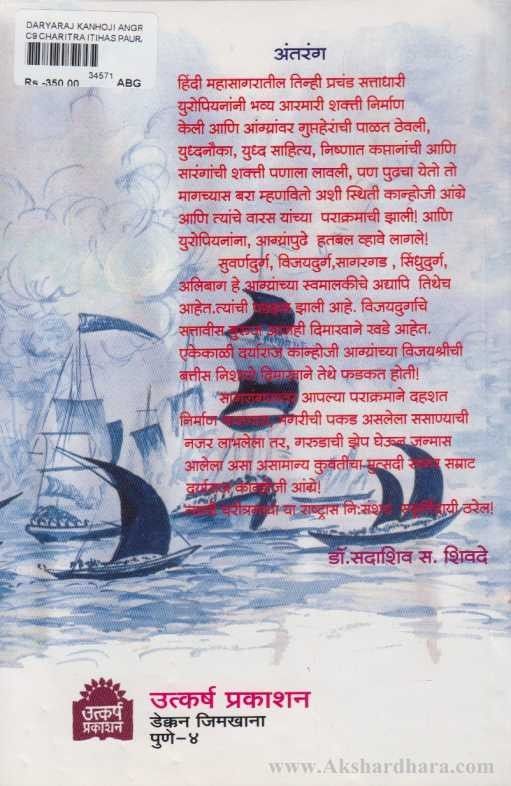 DARYARAJ KANHOJI ANGR
C9 CHARITRA ITIHAS PAUR.
34571
Rs.-350.00 ABG
अंतरंग
हिंदी महासागरातील तिन्ही प्रचंड सत्ताधारी
युरोपियनांनी भव्य आरमारी शक्ती निर्माण
केली आणि आंग्र्यांवर गुप्तहेरांची पाळत ठेवली,
युध्दनौका, युध्द साहित्य, निष्णात कप्तानांची आणि
सारंगांची शक्ती पणाला लावली, पण पुढचा येतो तो
मागच्यास बरा म्हणवितो अशी स्थिती कान्होजी आंग्रे
आणि त्यांचे वारस यांच्या पराक्रमांची झाली! आणि
युरोपियनांना, आंग्र्यांपुढे हतबल व्हावे लागले!
सुवर्णदुर्ग, विजयदुर्ग,सागरगड , सिंधुदुर्ग,
अलिबाग हे आंग्र्यांच्या स्वमालकीचे अद्यापि तिथेच
आहेत.त्यांची झाली आहे. विजयदुर्गाचे
सत्तावीस आजही दिमाखाने खडे आहेत.
एकेकाळी दर्याराज कान्होजी आंग्र्यांच्या विजयश्रीची
बत्तीस निशाणे दिमाखाने तेथे फडकत होती!
आपल्या पराक्रमाने दहशत
निर्माण मगरीची पकड असलेला ससाण्याची
नजर लाभलेला तर, गरुडाची झेप घेऊन जन्मास
आलेला असा असामान्य कुवतीचा मुत्सदी सम्राट
दर्याराज कान्होजी आंग्रे!
या राष्ट्रास नि:संशय ठरेल!
डॉ.सदाशिव स. शिवदे
उत्कर्ष
प्रकाशन
उत्कर्ष प्रकाशन
डेक्कन जिमखाना
पुणे-४
www.Akshardhara.com